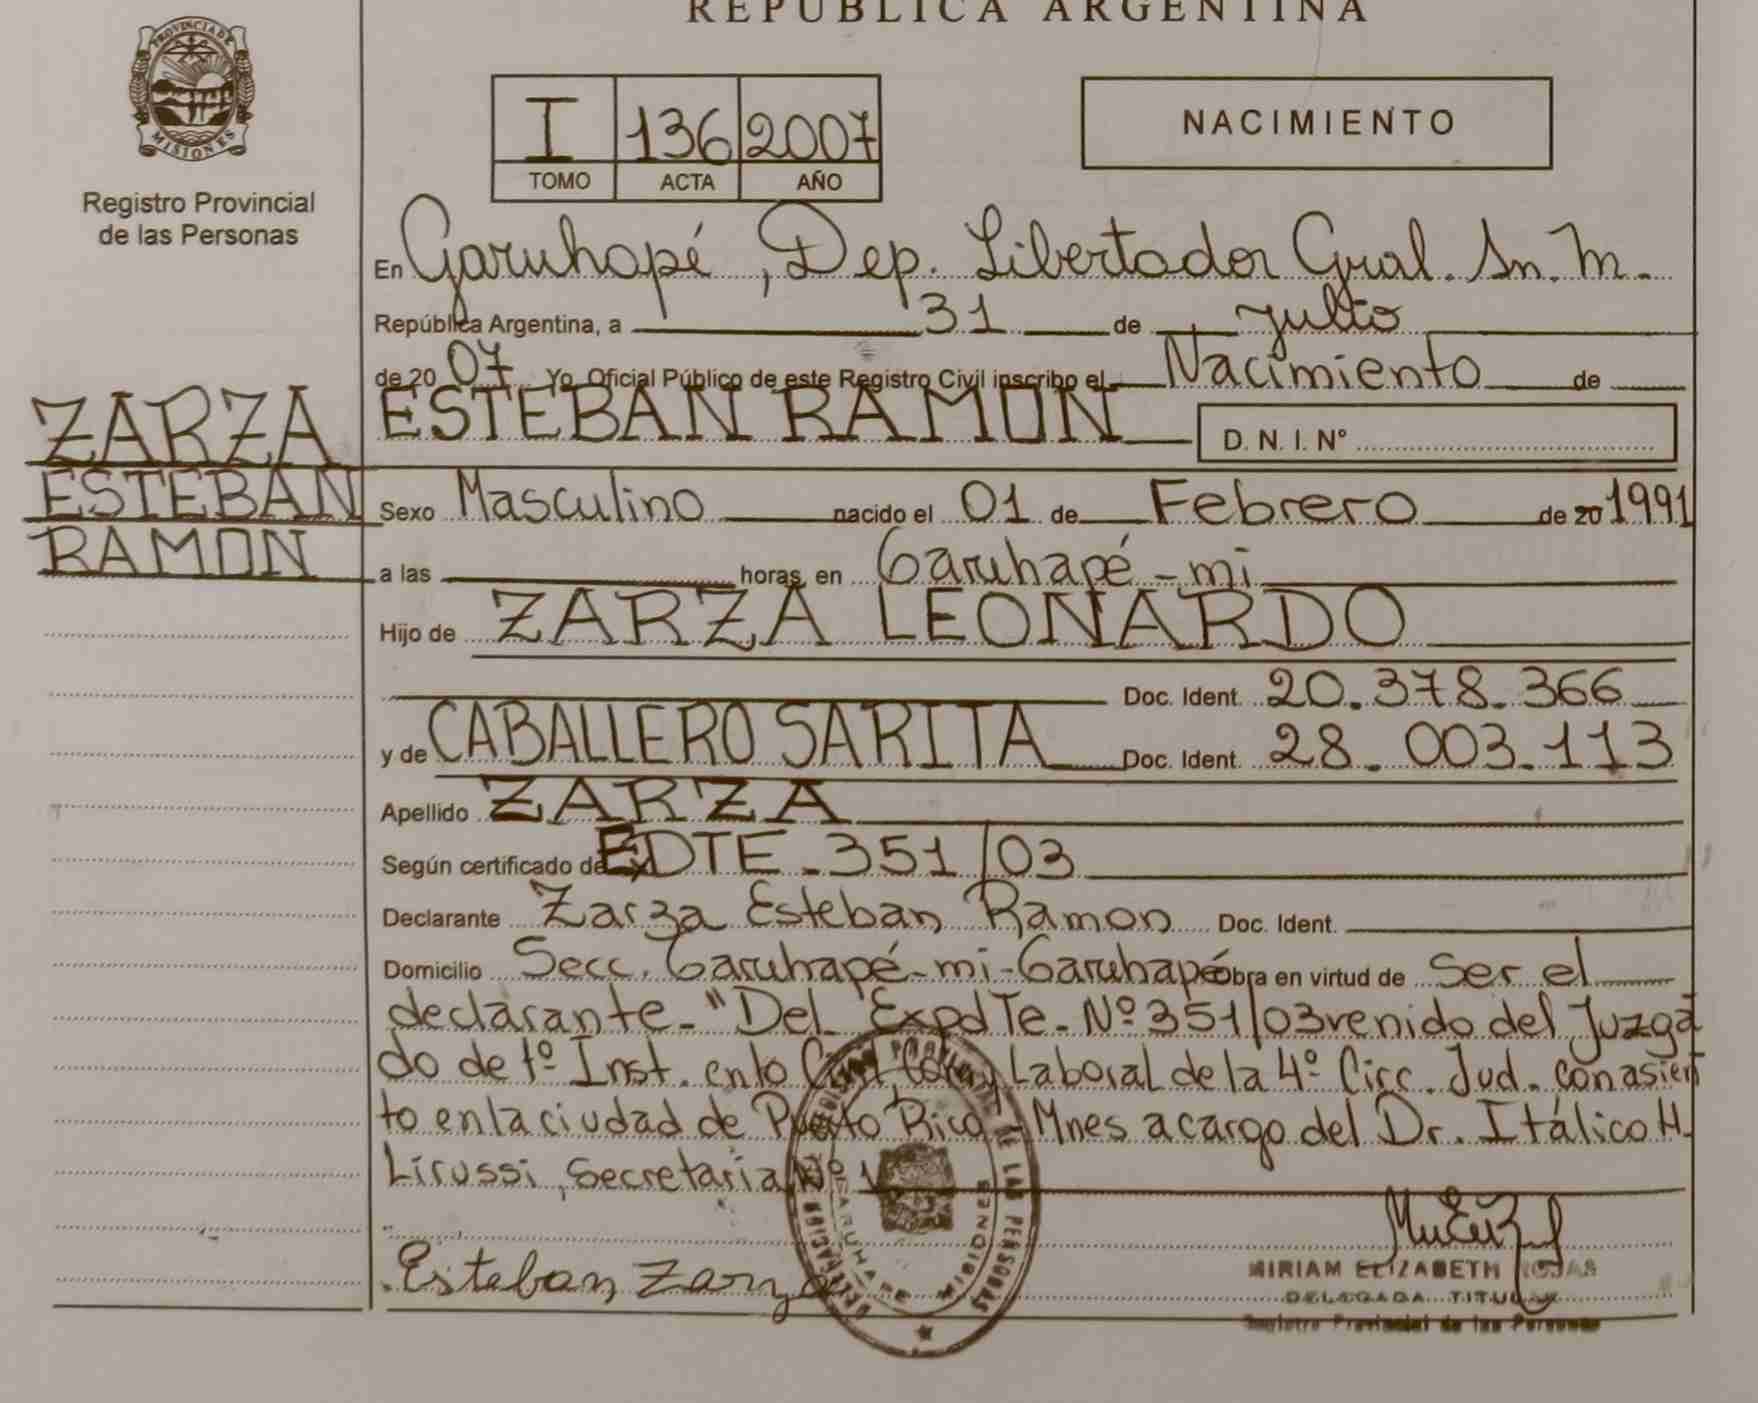 REPUBLICA ARGENTINA
PROVINCIA DE
MISIONES
Registro Provincial
de las Personas
I 136 2007
TOMO ACTA AÑO
NACIMIENTO
En Garuhapé, Dep. Libertador Gral. Sn. M.
República Argentina, a 31 de julio
de 20 07 Yo, Oficial Público de este Registro Civil inscribo el Nacimiento de
ESTEBAN RAMON D. N. I. Nº
ZARZA
ESTEBAN
RAMON
Sexo Masculino nacido el 01 de Febrero de 20 1991
a las horas, en Garuhapé - mi
Hijo de ZARZA LEONARDO
Doc. Ident. 20.378.366
y de CABALLERO SARITA Doc. Ident. 28.003.113
Apellido ZARZA
Según certificado de EDTE - 351/03
Declarante Zarza Esteban Ramon Doc. Ident.
Domicilio Secc. Garuhapé-mi-Garuhapé obra en virtud de Ser el
declarante - "Del ExpdTe - Nº 351/03 venido del Juzga
do de 1º Inst. en lo Civil, Com. y Laboral de la 4º Circ. Jud. con asien
to en la ciudad de Puerto Rico - Mnes a cargo del Dr. Itálico H.
Lirussi, Secretaria Nº 1
Esteban Zarza
DELEGACION GARUHAPE
MISIONES
MIRIAM ELIZABETH ROJAS
DELEGADA TITULAR
Registro Provincial de las Personas